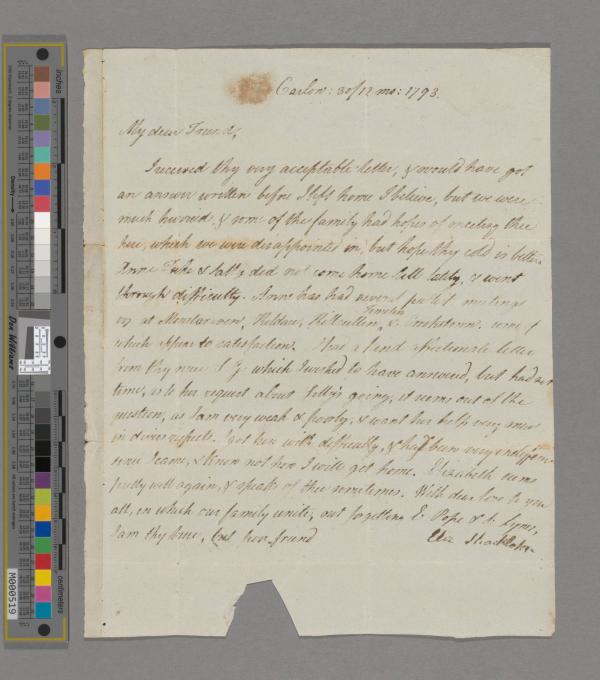 Carlow: 30/12 mo: 1793.
My dear Friend,
I received thy very acceptable letter, & would have got
an answer written before I left home I believe, but we were
much hurried, & some of the family had hopes of meeting thee
here, which we were disappointed in, but hope thy cold is better.
Anne Tuke & Sally did not come home till lately, & went
through difficulty. Anne has had several public meetings
Timolin
as at Kildare, Kilcullen, & some of
which appear to satisfaction. I had a kind affectionate letter
from thy niece S G which I wished to have answered, but had not
time, as to her request about Sally's going, it seems out of the
question, as I am very weak & poorly, & want her help very much
in divers respects. I got here with difficulty, & have been very
since I came, & know not how I will get home. Elizabeth seems
pretty well again, & speaks of thee sometimes. With dear love to you
all, in which our family unite, not forgetting E. Pope &
I am thy true, but poor friend Eliz Shackleton
inches
centimeters
Density
Don Williams
M000519